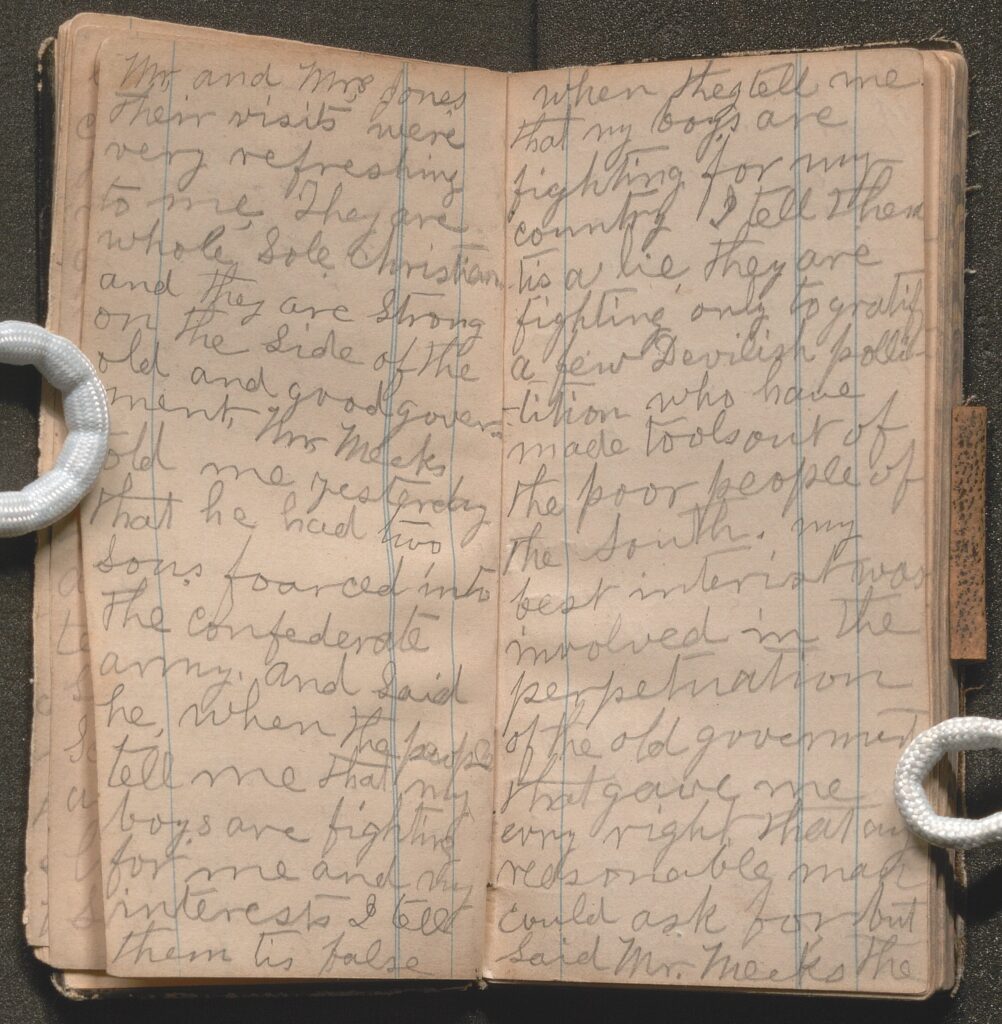 Mr. and Mrs Jones
Their visits were
very refreshing
to me, They are
whole, Sole Christian
and they are Strong
on the Side of the
old and good govern-
ment, Mr. Meeks
told me yesterday
that he had two
Sons foarced into
The confederate
army, and Said
he, when the people
tell me that my
boys are fighting
for me and my
interests I tell
them tis false
when they tell me
that my boys are
fighting for my
country I tell them
tis a lie, they are
fighting only to gratify
a few Devilish polli-
tition who have
made tools out of
the poor people of
the South. my
best interist was
involved in the
perpetuation
of the old goverment
that gave me
evry right that any
reasonable man
could ask for but
Said Mr. Meeks the